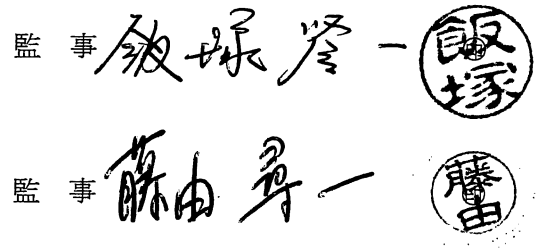 監 事 飯塚 一 飯塚
監 事 藤由 尋一 藤由